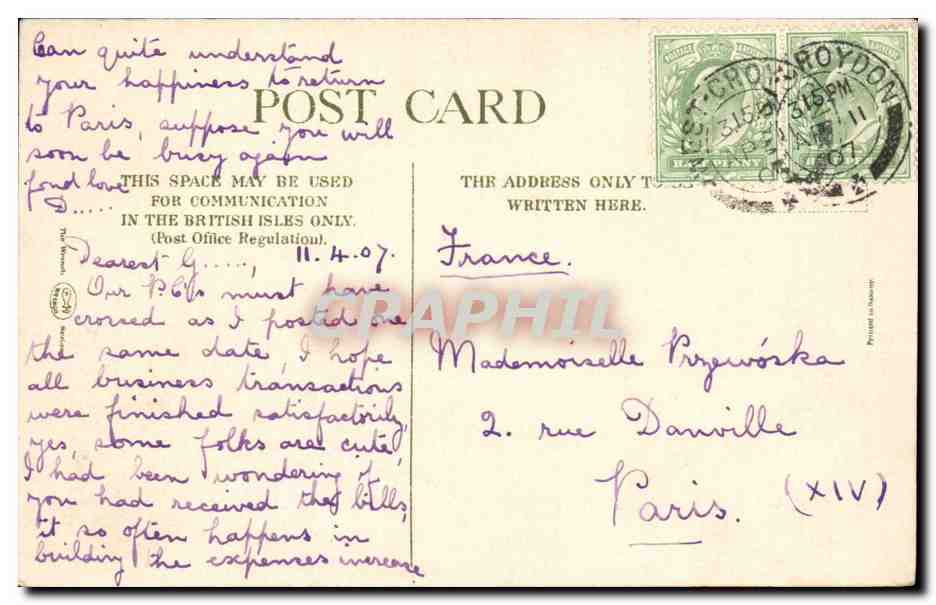 Can quite understand
your happiness to return
to Paris, suppose you will
soon be busy again
fond love
D.....
POST CARD
THIS SPACE MAY BE USED
FOR COMMUNICATION
IN THE BRITISH ISLES ONLY.
(Post Office Regulation).
11.4.07.
Dearest G.....,
Our P.C's must have
crossed as I posted one
the same date, I hope
all business transactions
were finished satisfactorily,
yes, some folks are cute,
I had been wondering if
you had received the bills,
it so often happens in
building the expenses increase
The Wrench
Series
THE ADDRESS ONLY TO BE
WRITTEN HERE.
France.
Mademoiselle Przewóska
2. rue Danville
Paris. (XIV)
HALF PENNY
WEST CROYDON
3.15 PM
AP 11
07
CROYDON
3.15 PM
AP 11
07
Printed in Saxony
CPAPHIL